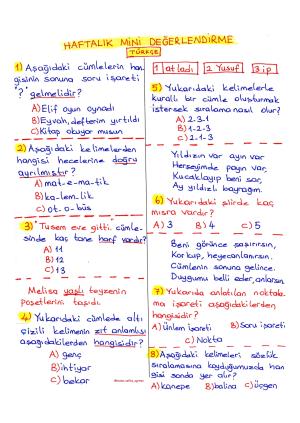 HAFTALIK MİNİ DEĞERLENDİRME
TÜRKÇE
1) Aşağıdaki cümlelerin han
gisinin sonuna soru işareti
"?" gelmelidir?
A) Elif oyun oynadı
B) Eyvah, defterim yırtıldı
C) Kitap okuyor musun
2) Aşağıdaki kelimelerden
hangisi hecelerine doğru
ayrılmıştır?
A) mat-e-ma-tik
B) ka-lem-lik
C) ot-o-büs
3) "Tusem eve gitti. cümle-
sinde kaç tane harf vardır?
A) 11
B) 12
C) 13
Melisa yaşlı teyzenin
poşetlerini taşıdı.
4) Yukarıdaki cümlede altı
çizili kelimenin zıt anlamlısı
aşağıdakilerden hangisidir?
A) genç
B) ihtiyar
C) bekar
1 atladı 2 Yusuf 3 ip
5) Yukarıdaki kelimelerle
kurallı bir cümle oluşturmak
istersek sıralama nasıl olur?
A) 2-3-1
B) 1-2-3
C) 2-1-3
Yıldızın var ayın var.
Herşeyimde payın var.
Kucaklayıp beni sar,
Ay yıldızlı bayrağım.
6) Yukarıdaki şiirde kaç
mısra vardır?
A) 3 B) 4 C) 5
Beni görünce şaşırırsın,
Korkup, heyecanlanırsın.
Cümlenin sonuna gelince.
Duygumu belli eder, anlarsın.
7) Yukarıda anlatılan nokta-
ma işareti aşağıdakilerden
hangisidir?
A) Ünlem işareti B) Soru işareti
C) Nokta
8) Aşağıdaki kelimeleri sözlük
sıralamasına koyduğumuzda han
gisi sonda yer alır?
A) kanepe B) balina C) üçgen